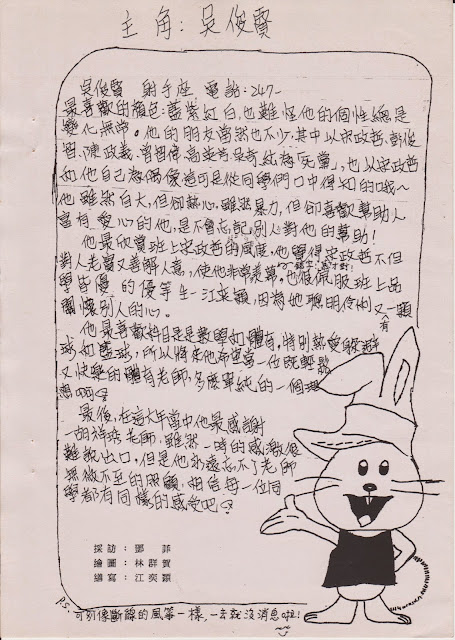 主角:吳俊賢
吳俊賢 射手座 電話:247-
最喜歡的顏色:藍紫紅白,也難怪他的個性總是
變化無常。他的朋友當然也不少,其中以宋政哲、彭俊
智、陳政義、曾智偉、高 為「死黨」,也以宋政哲
和他自己為偶像這可是從同學們口中得知的哦~
他雖然自大,但卻熱心。雖然暴力,但卻喜歡幫助人
富有愛心的他,是不會忘記別人對他的幫助!
他最欣賞班上宋政哲的風度,他覺得宋政哲不但
對人老實又善解人意,使他非常羨慕,也很佩服班上品
學皆優的優等生—江奕穎,因為她聰明伶俐又有一顆
關懷別人的心。
他最喜歡科目是數學和體育,特別熱愛躲避
球和籃球,所以將來他希望當一位既輕鬆
又快樂的體育老師,多麼單純的一個理
想啊!
最後,在這六年當中他最感謝
—胡 老師,雖然一時的感激很
難說出口,但是他永遠忘不了老師
無微不至的照顧,相信每一位同
學都有同樣的感受吧!
採訪:鄧 菲
繪圖:林群賀
繕寫:江奕穎
P.S. 可別像斷線的風箏一樣,一去就沒消息啦!